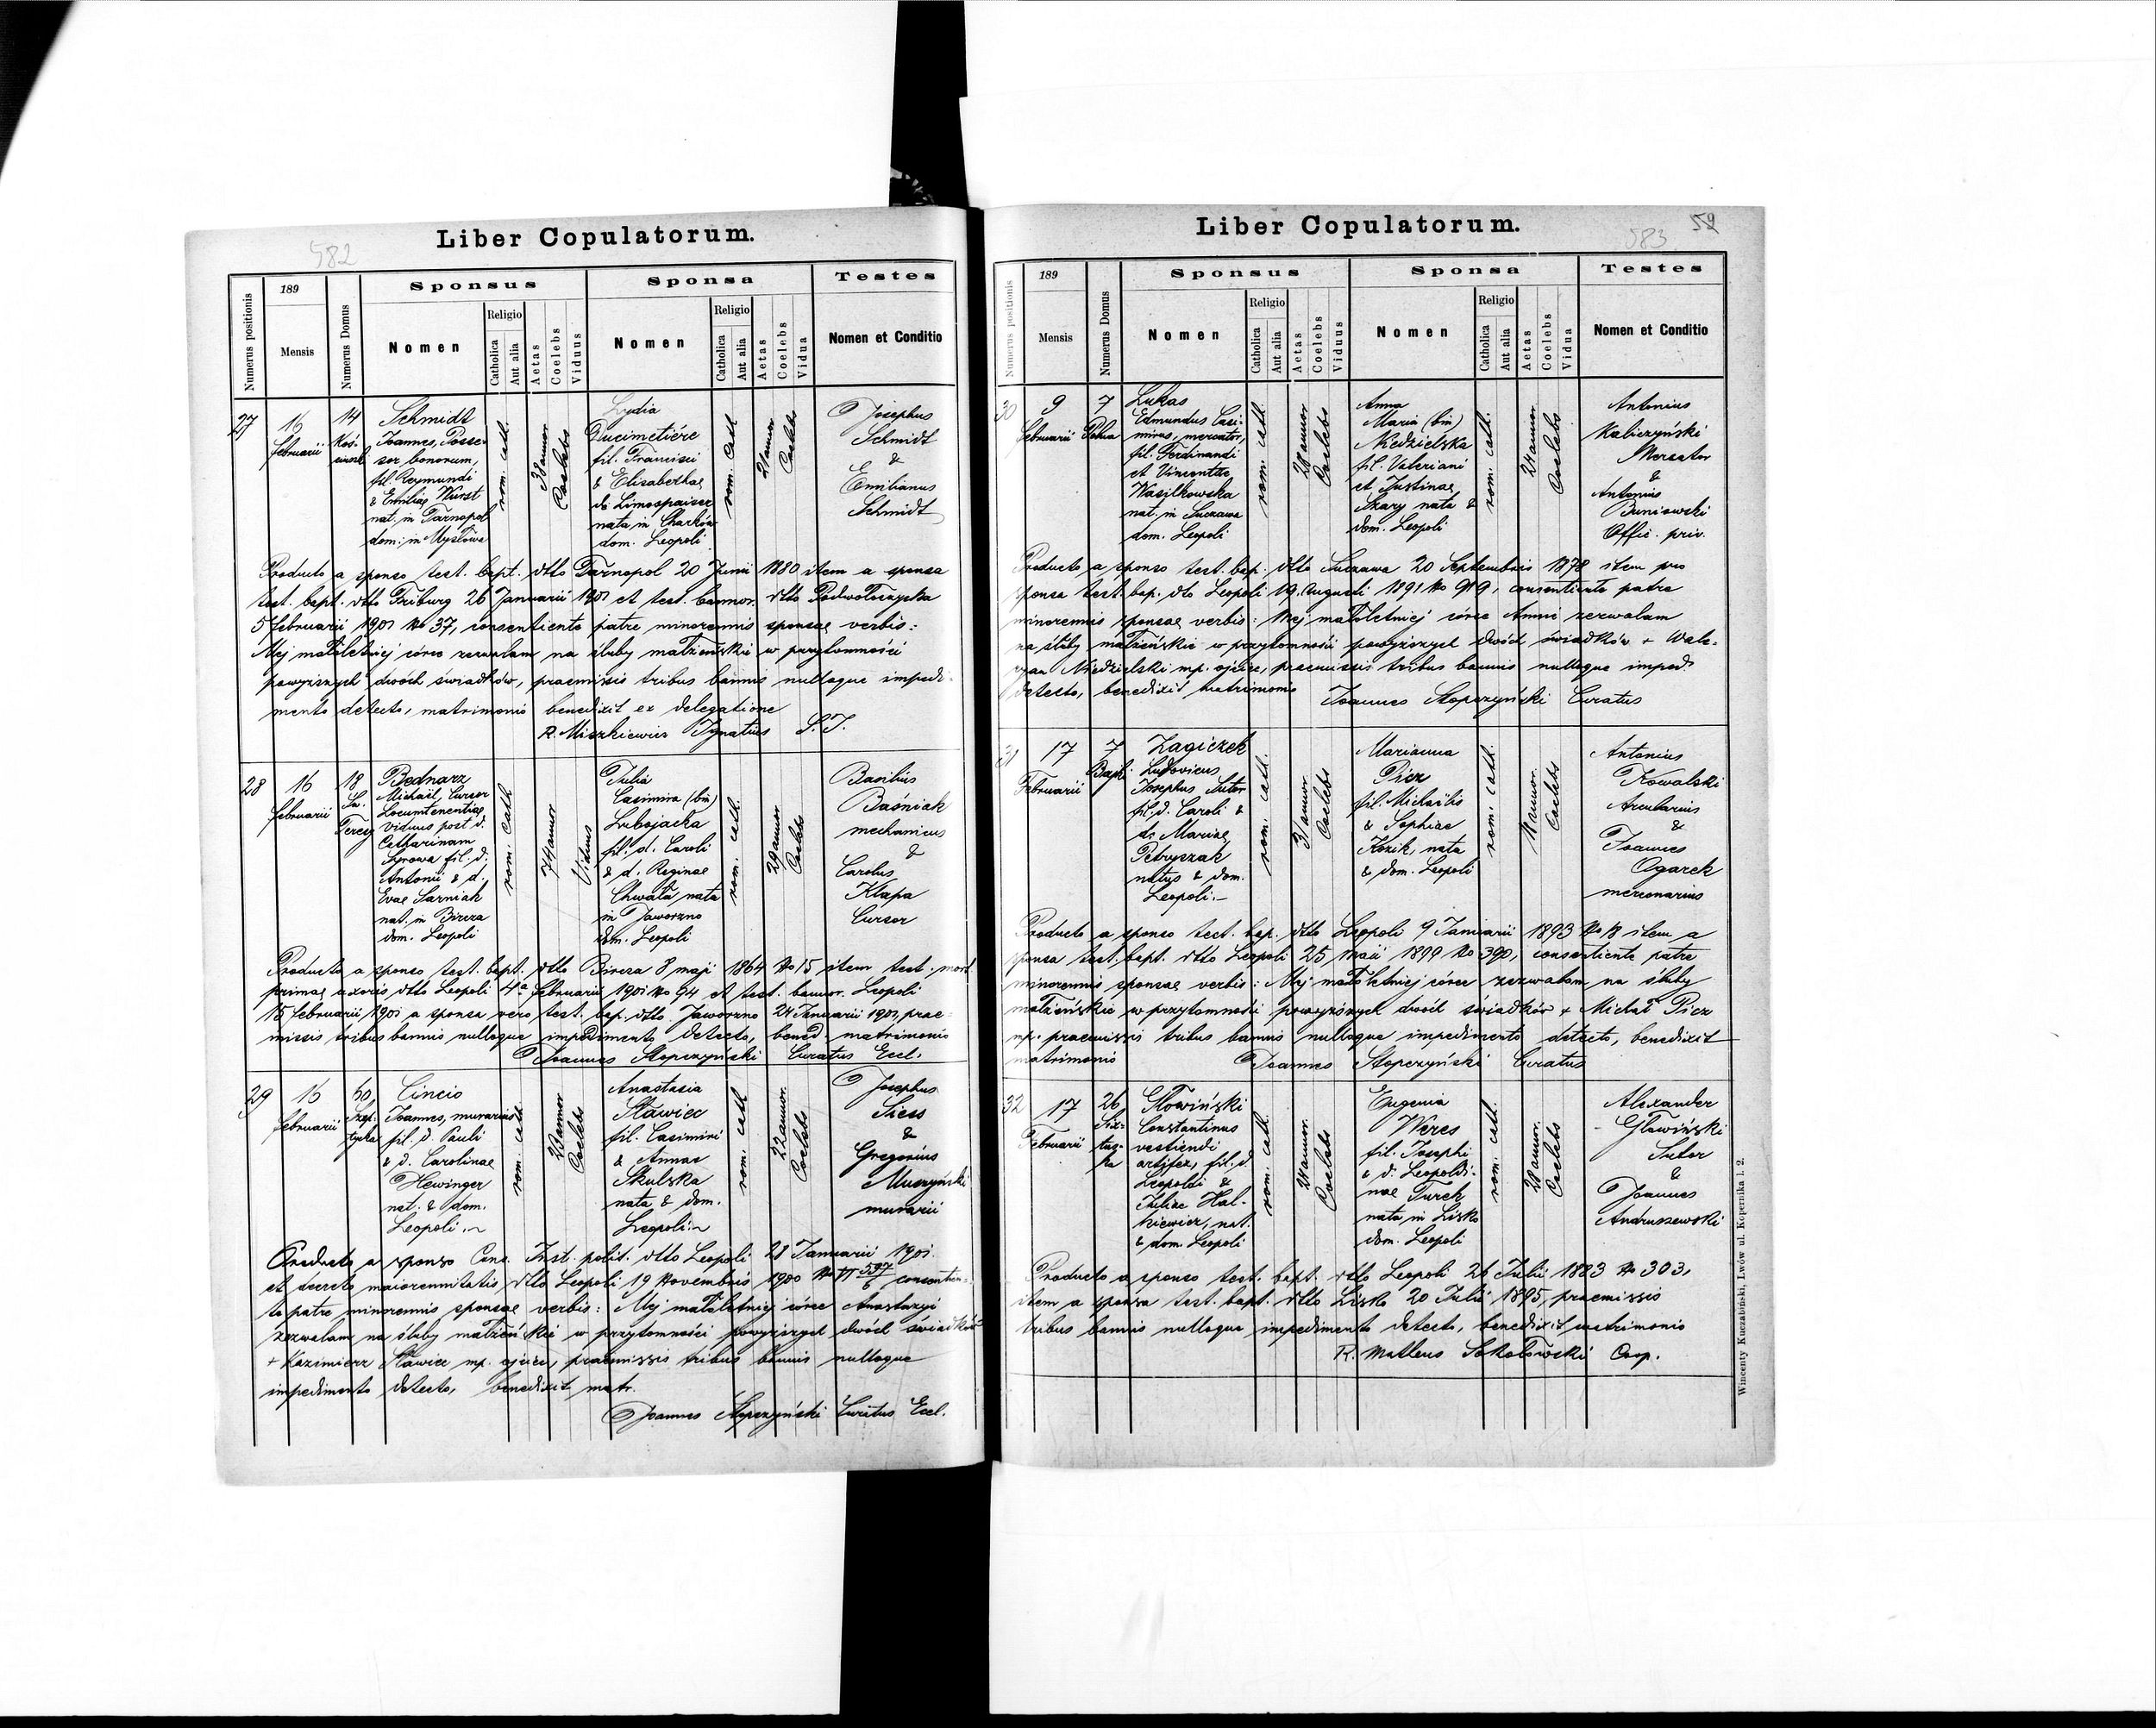 582
Liber Copulatorum.
Numerus positionis
189
Mensis
Numerus Domus
Sponsus
Nomen
Religio
Catholica
Aut alia
Aetas
Coelebs
Viduus
Sponsa
Nomen
Religio
Catholica
Aut alia
Aetas
Coelebs
Vidua
Testes
Nomen et Conditio
27
16
Februarii
14
Schmidt
Joannes, Posses-
sor bonorum,
fil. Reymundi
& Emilias Wurst
nat. in Tarnopol
dom. in
rom. cath.
38 annor
Coelebs
Lydia
Ducimetiére
fil. Francisci
& Elisabethae
de Limospaiser
nata in Charków
dom. Leopoli
rom. cath
21 annor
Coelebs
Josephus
Schmidt
&
Emilianus
Schmidt
Producto a sponso test. bapt. dtto Tarnopol 20 Junii 1880 item a sponsa
test. bapt. dtto Friburg 26 Januarii 1901 et test. bannor. dtto Podwołoczyska
5 Februarii 1901 No 37, consentiente patre minorennis sponsae verbis:
Mej małoletniej córce zezwalam na śluby małżeńskie w przytomności
powyższych dwóch świadków, praemissis tribus bannis nulloque impedi-
mento detecto, matrimonio benedixit ex delegatione
R. Miszkiewicz Ignatius S.J.
28
16
Februarii
18
Św.
Teresy
Bednarz
Michaël, Cursor
Locumtenentiae
viduus post d.
Catharinam
fil. d.
Antonii & d.
Evae Sarniak
nat. in Bircza
dom. Leopoli
rom. cath
74 annor
Viduus
Julia
Casimira (bin)
Lubojacka
fil. d. Caroli
& d. Reginae
Chwała nata
in Jaworzno
dom. Leopoli
rom. cath.
29 annor
Coelebs
Basilius
Baśniak
mechanicus
&
Carolus
Kłapa
Cursor
Producto a sponso test. bapt. dtto Bircza 8 maji 1864 No 15 item test. mort.
primae uxoris dtto Leopoli 4a Februarii 1901 No 94 et test. bannor. Leopoli
15 Februarii 1901 a sponsa vero test. bap. dtto Jaworzno 24 Januarii 1901, prae-
missis tribus bannis nulloque impedimento detecto, bened. matrimonio
Joannes Stopczyński Curatus Eccl.
29
16
Februarii
60
Szep-
tycka
Cincio
Joannes, murarius
fil. d. Pauli
& d. Carolinae
Hewinger
nat. & dom.
Leopoli.
rom. cath.
23 annor
Coelebs
Anastasia
Sławiec
fil. Casimiri
& Annae
Skulska
nata & dom.
Leopoli.
rom. cath
22 annor.
Coelebs
Josephus
Siess
&
Gregorius
Muszyński
murarii
Producto a sponso Cons. Inst. polit. dtto Leopoli 28 Januarii 1901.
et decreto maiorennitatis, dtto Leopoli 19 Novembris 1900 consentien-
te patre minorennis sponsae verbis: Mej małoletniej córce Anastazyi
zezwalam na śluby małżeńskie w przytomności powyższych dwóch świadków
+ Kazimierz Sławiec mp. ojciec, praemissis tribus bannis nulloque
impedimento detecto, benedixit matr.
Joannes Stopczyński Curatus Eccl.
583
59
Liber Copulatorum.
Numerus positionis
189
Mensis
Numerus Domus
Sponsus
Nomen
Religio
Catholica
Aut alia
Aetas
Coelebs
Viduus
Sponsa
Nomen
Religio
Catholica
Aut alia
Aetas
Coelebs
Vidua
Testes
Nomen et Conditio
30
9
Februarii
7
Pełna
Lukas
Edmundus Casi-
mirus, mercator,
fil. Ferdinandi
et Vincentae
Wasilkowska
nat. in Suczawa
dom. Leopoli
rom. cath.
28 annor
Coelebs
Anna
Maria (bin)
Niedzielska
fil. Valeriani
et Justinae
Szary nata &
dom. Leopoli
rom. cath.
24 annor
Coelebs
Antonius
Kaliczyński
Mercator
&
Antonius
Buniowski
Offic. priv.
Producto a sponso test. bap. dtto Suczawa 20 Septembris 1878 item pro
sponsa test. bap. dto Leopoli 19. Augusti 1891 No 919, consentiente patre
minorennis sponsae verbis: Mej małoletniej córce Annie zezwalam
na śluby małżeńskie w przytomności powyższych dwóch świadków + Wale-
ryan Niedzielski mp. ojciec, praemissis tribus bannis nulloque imped.
detecto, benedixit matrimonio
Joannes Stopczyński Curatus
31
17
Februarii
7
Bajki
Zagiczek
Ludovicus
Josephus Sutor
fil. d. Caroli &
d. Mariae
Petryszak
natus & dom.
Leopoli.
rom. cath.
31 annor
Coelebs
Marianna
Picz
fil. Michaëlis
& Sophiae
Kozik, nata
& dom. Leopoli
rom. cath.
18 annor.
Coelebs
Antonius
Kowalski
Arcularius
&
Joannes
Ogarek
mercenarius
Producto a sponso test. bap. dtto Leopoli 9 Januarii 1893 No 18 item a
sponsa test. bapt. dtto Leopoli 25 maii 1899 No 390, consentiente patre
minorennis sponsae verbis: Mej małoletniej córce zezwalam na śluby
małżeńskie w przytomności powyższych dwóch świadków + Michał Picz
mp. praemissis tribus bannis nulloque impedimento detecto, benedixit
matrimonio
Joannes Stopczyński Curatus
32
17
Februarii
26
Six-
tus-
ka
Głowiński
Constantinus
vestiendi
artifex, fil. d.
Leopoldi &
Juliae Hal-
kiewicz, nat.
& dom. Leopoli
rom. cath.
24 annor.
Coelebs
Eugenia
Weres
fil. Josephi
& d. Leopoldi-
nae Turek
nata in Lisko
dom. Leopoli
rom. cath.
28 annor.
Coelebs
Alexander
Głowiński
Sutor
&
Joannes
Andruszewski
Producto a sponso test. bapt. dtto Leopoli 26 Julii 1883 No 303,
item a sponsa test. bapt. dtto Lisko 20 Julii 1895, praemissis
tribus bannis nulloque impedimento detecto, benedixit matrimonio
R. Matheus Sokołowski Coop.
Wincenty Kuczabiński, Lwów ul. Kopernika l. 2.